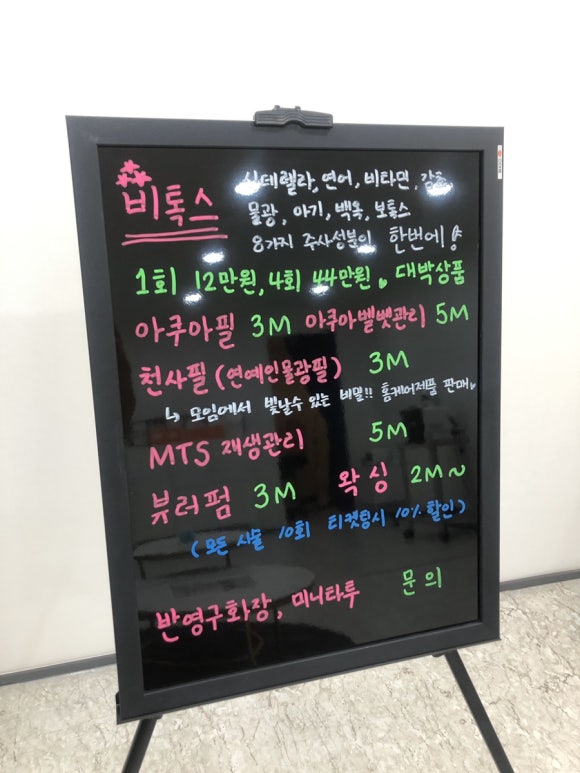 비톡스
신데렐라, 연어, 비타민, 감초
물광, 아기, 백옥, 보톡스
8가지 주사성분이 한번에!
1회 12만원, 4회 44만원. 대박상품
아쿠아필 3M 아쿠아벨벳관리 5M
천사필 (연예인물광필) 3M
↳ 모임에서 빛날수 있는 비밀!! 홈케어제품 판매
MTS 재생관리 5M
뷰러펌 3M 왁싱 2M~
(모든 시술 10회 티켓팅시 10% 할인)
반영구화장, 미니타투 문의